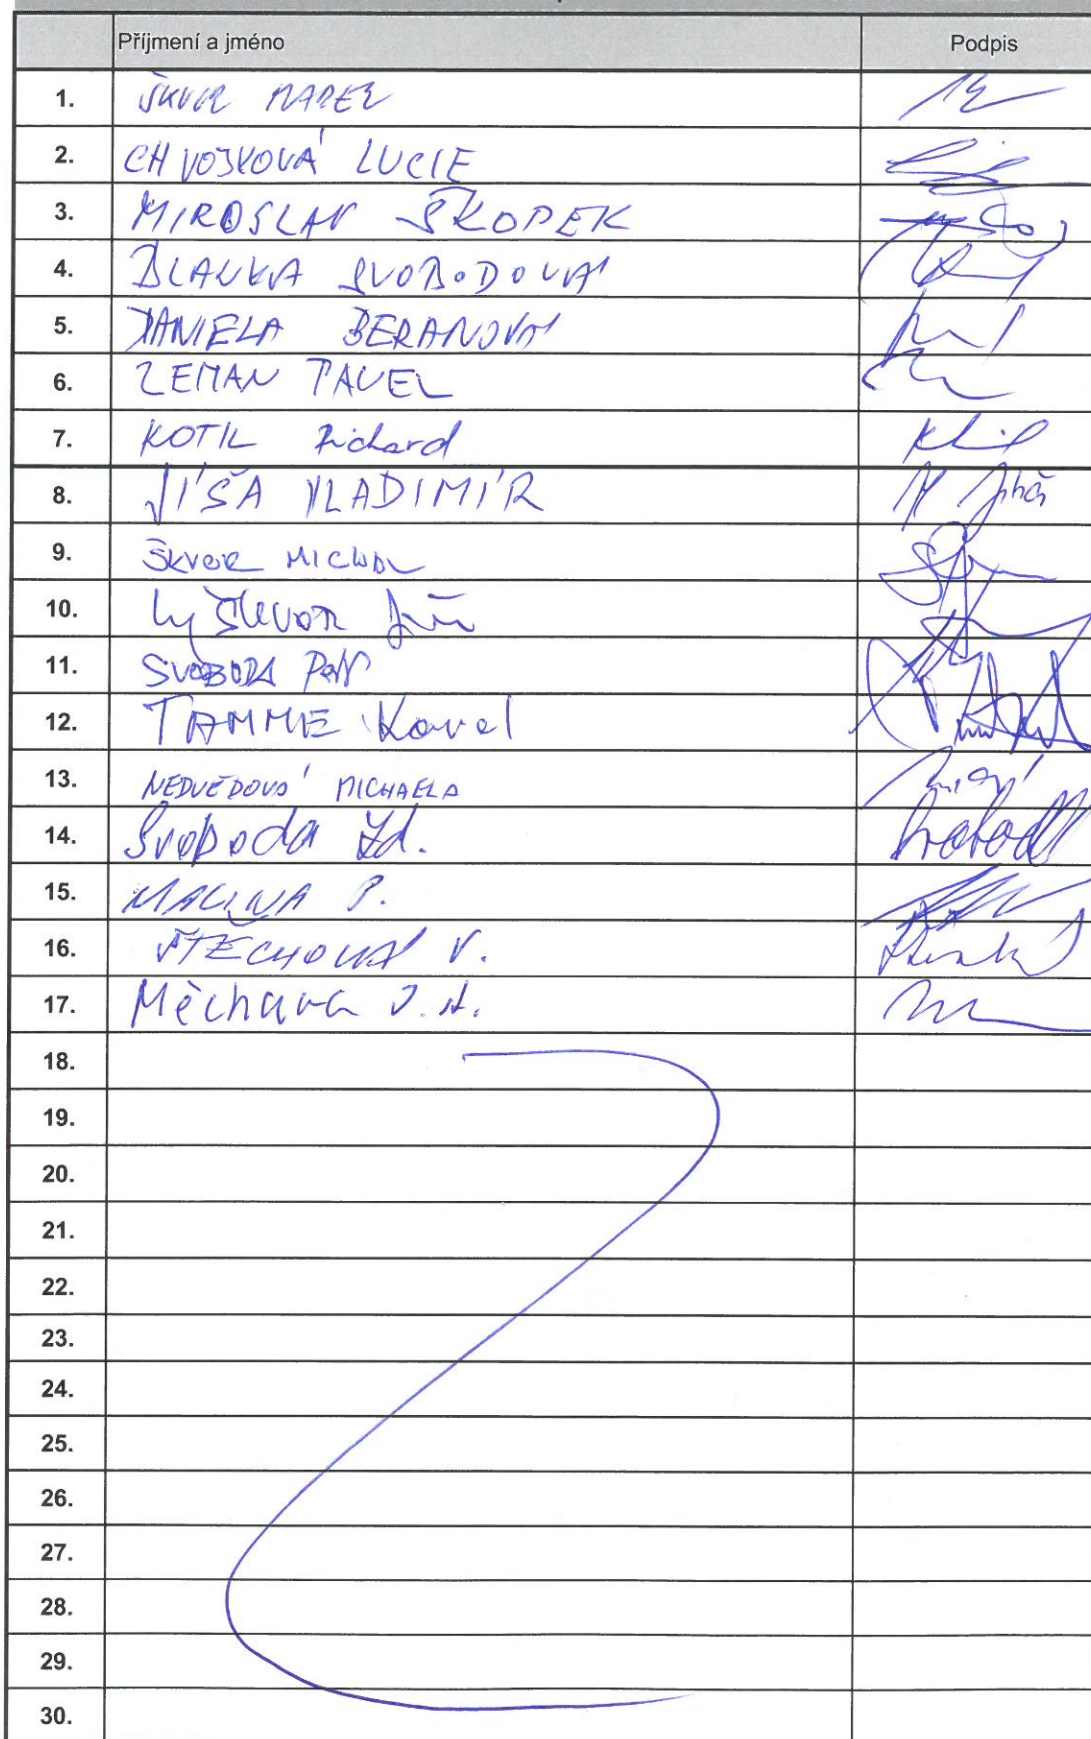 Příjmení a jméno Podpis
1. ŠKVOR MAREK
2. CHVOJKOVÁ LUCIE
3. MIROSLAV ŠKOPEK
4. BLANKA SVOBODOVÁ
5. DANIELA BERANOVÁ
6. ZEMAN PAVEL
7. KOTIL Richard
8. JÍŠA VLADIMÍR
9. ŠKVOR MICHAL
10. Škvor Jiří
11. SVOBODA Petr
12. TAMME Karel
13. NEDVĚDOVÁ MICHAELA
14. Svoboda Zd. Svoboda
15. MALINA P.
16. ŠTĚCHOVÁ V.
17. Měchura J.
18.
19.
20.
21.
22.
23.
24.
25.
26.
27.
28.
29.
30.